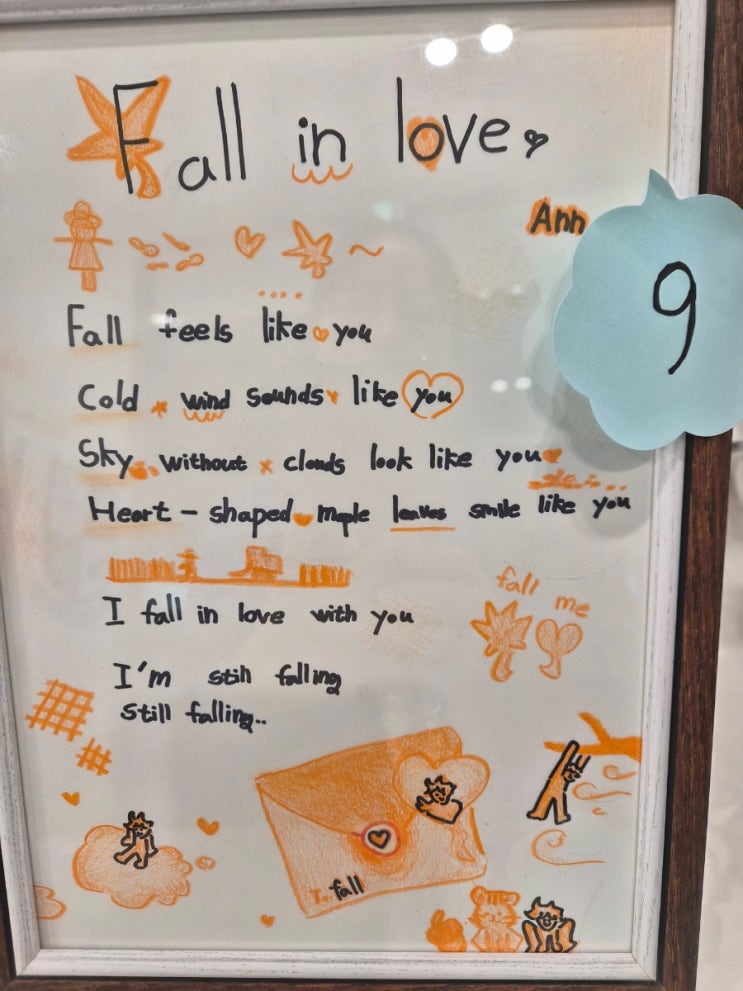 Fall in love
Ann
9
Fall feels like you
Cold wind sounds like you
Sky without clouds look like you
Heart-shaped maple leaves smile like you
fall me
I fall in love with you
I'm still falling
Still falling..
To. fall